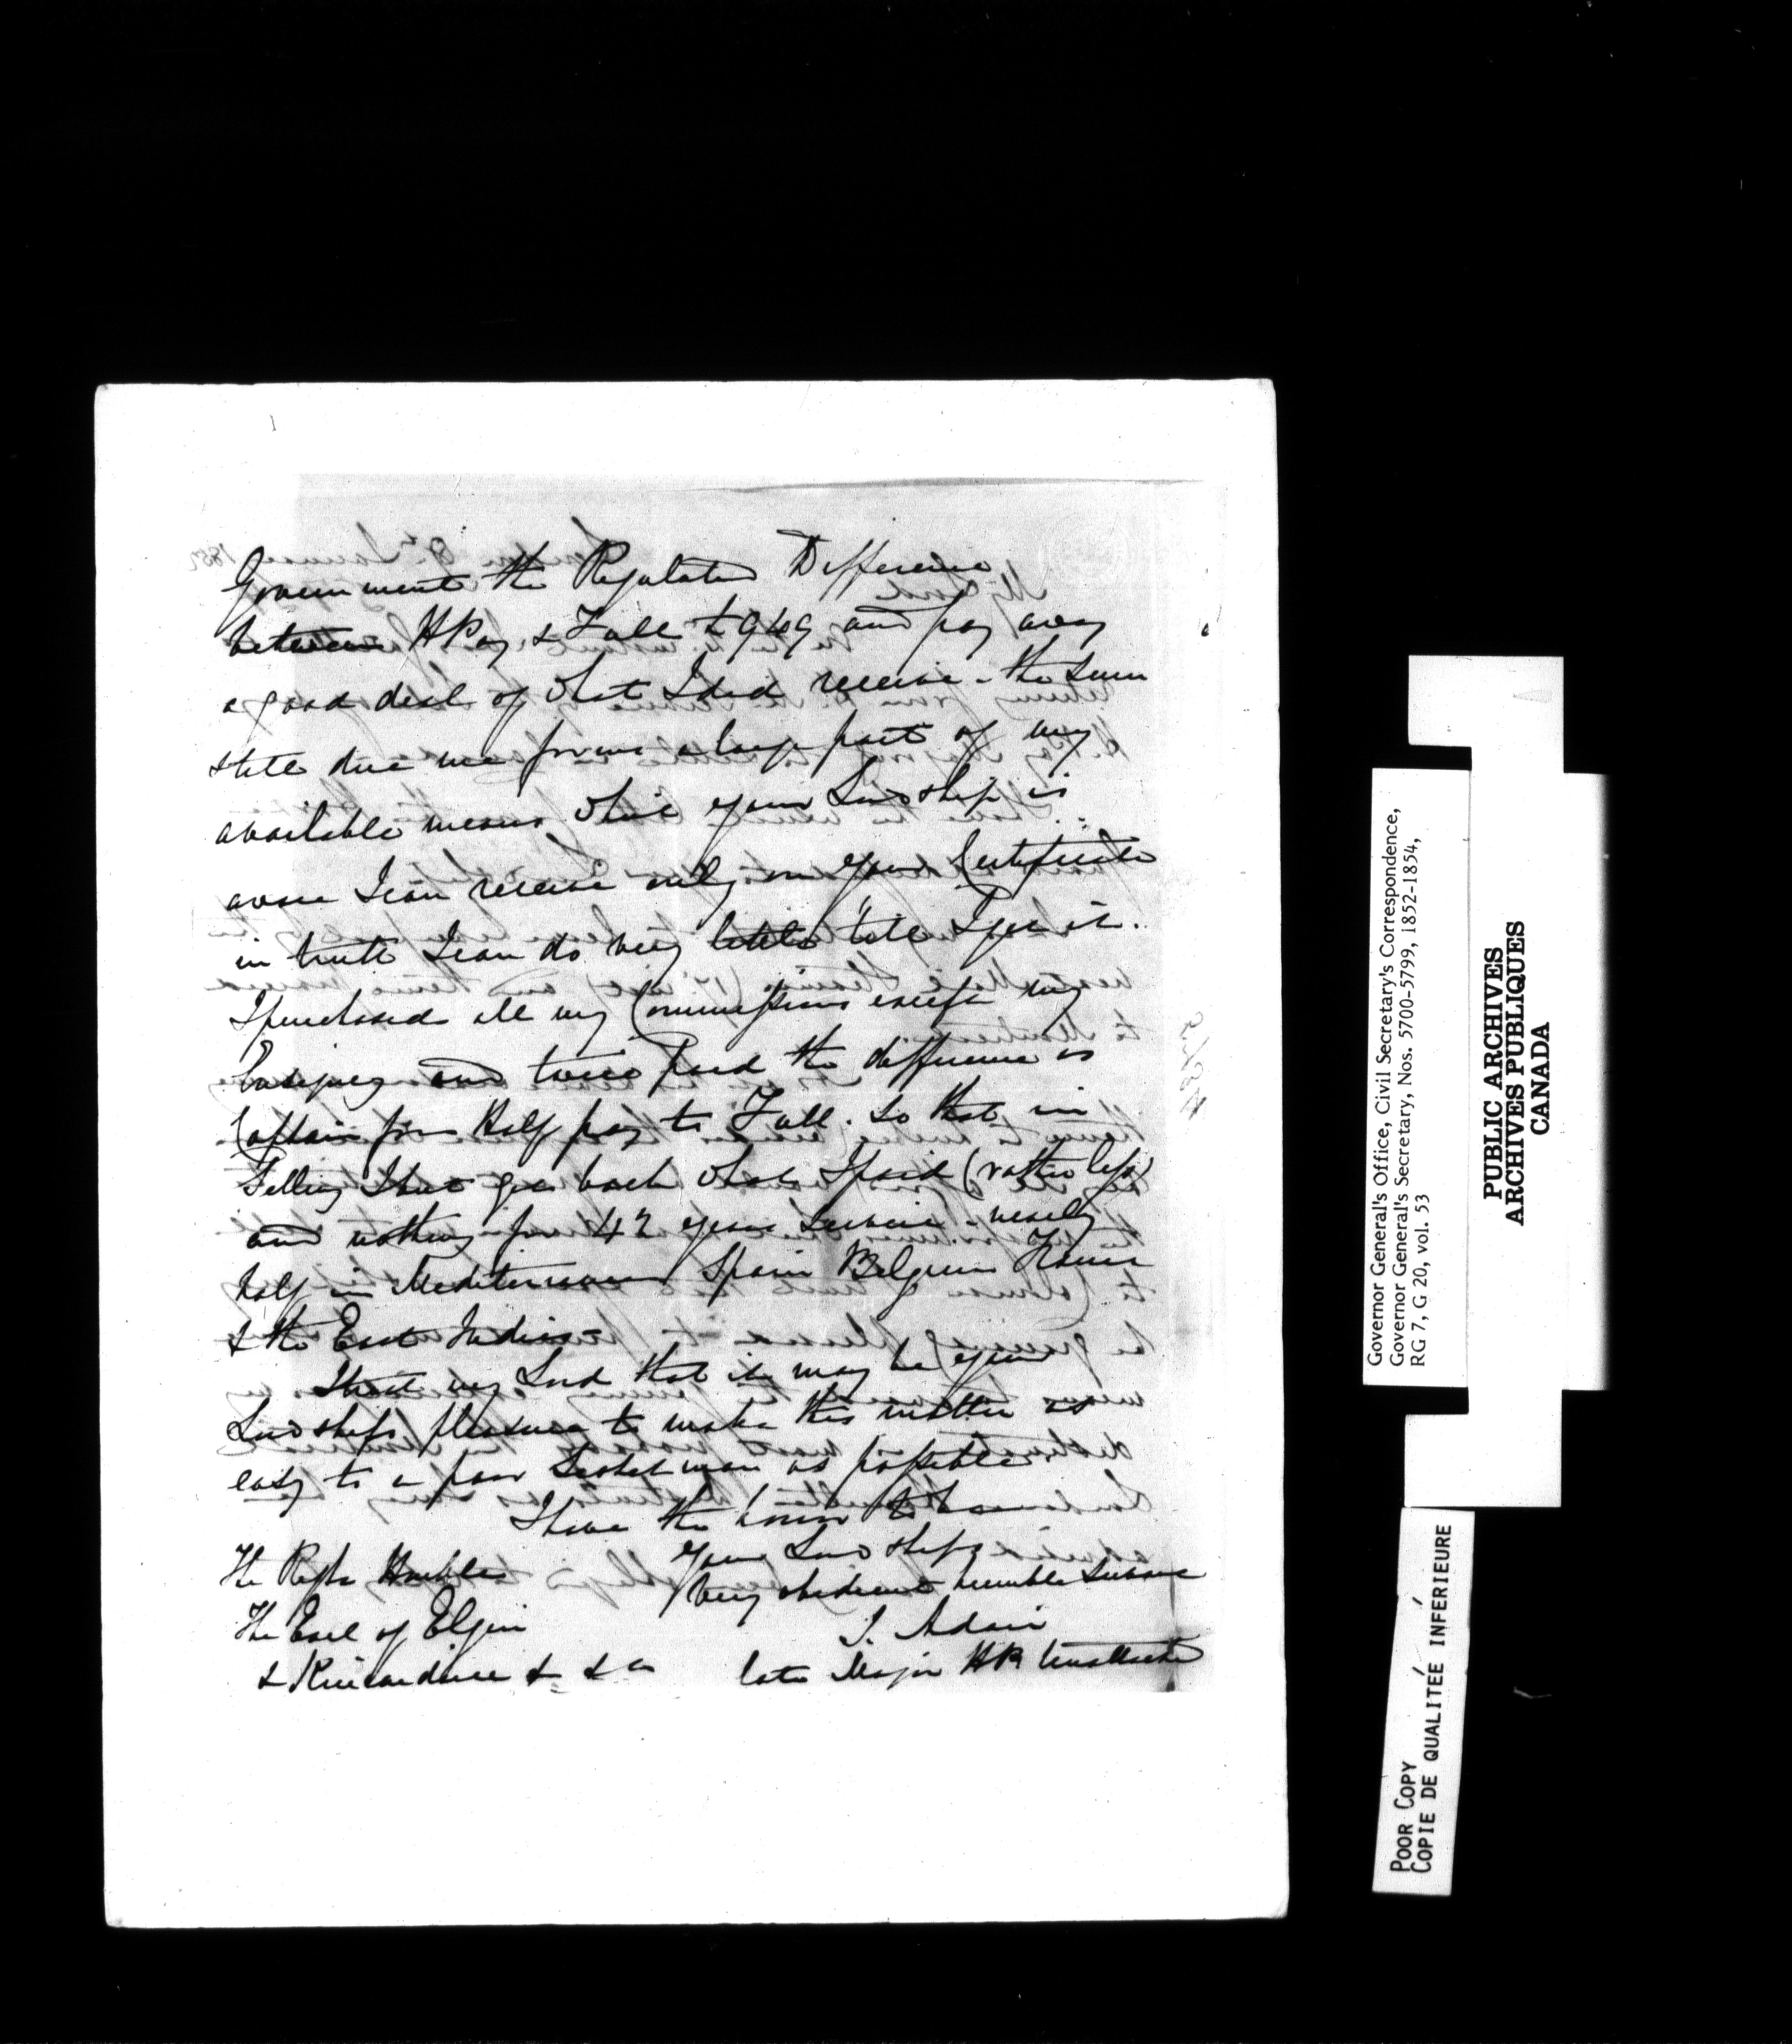 Government the Regulated Difference
between HPay & Full £949 and pay away
a good deal of what I did receive - the sum
still due me forms a large part of my
available means which your Lordship is
aware I can receive only on your Certificate
in truth I can do very little till I get it.
I purchased all my Commissions except my
Ensigncy and twice paid the difference as
Captain from Half pay to Full. So that in
Selling I but get back what I paid (rather less)
and nothing for 42 years Service - nearly
half in Mediterranean Spain Belgium France
& the East Indies -
I trust my Lord that it may be your
Lordships pleasure to make this matter as
easy to a poor Scotchman as possible
I have the honor to be
Your Lordships
Very obedient humble Servant
The Right Honble
The Earl of Elgin
& Kincardine & & &c
Adair
late Major HP Unattached
Governor General's Office, Civil Secretary's Correspondence,
Governor General's Secretary, Nos. 5700-5799, 1852-1854,
RG 7, G 20, vol. 53
PUBLIC ARCHIVES
ARCHIVES PUBLIQUES
CANADA
POOR COPY
COPIE DE QUALITEÉ INFÉRIEURE